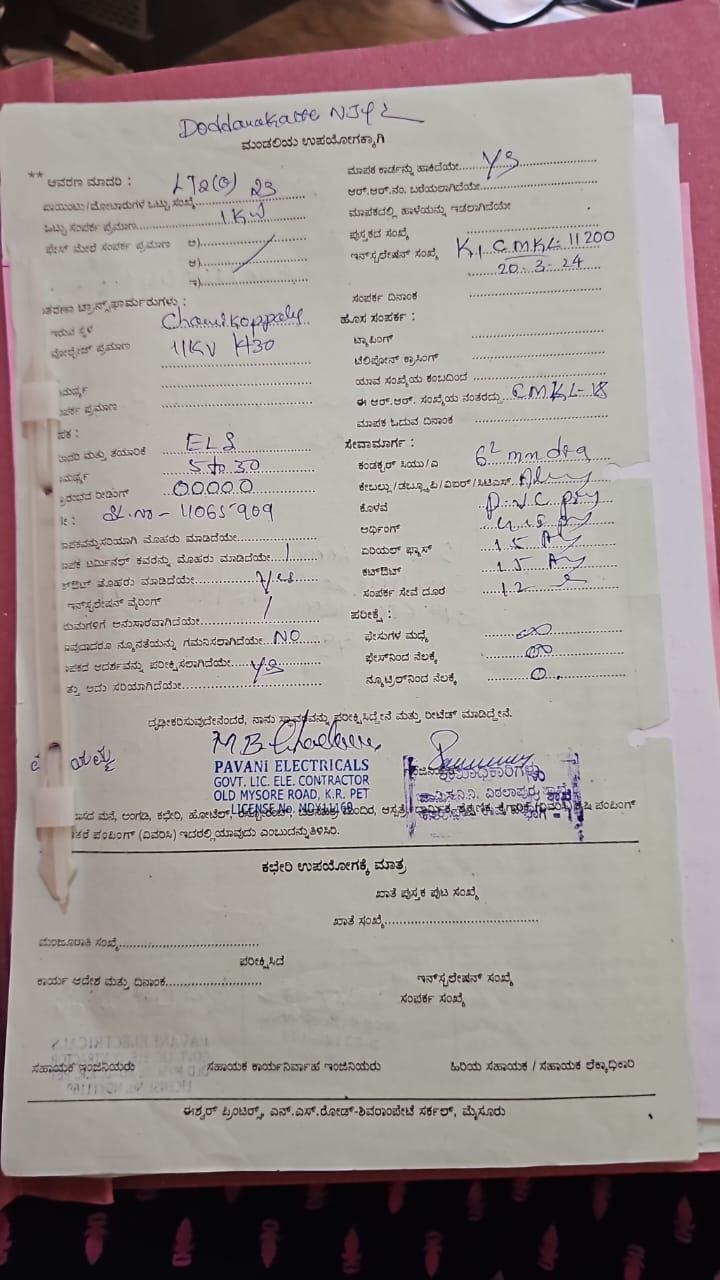 Doddanakatte NJY 2
ಮಂಡಲಿಯ ಉಪಯೋಗಕ್ಕಾಗಿ
** ಆವರಣ ಮಾದರಿ : LT2(a) 23
ಪಾಯಿಂಟು/ಮೋಟಾರುಗಳ ಒಟ್ಟು ಸಂಖ್ಯೆ
ಒಟ್ಟು ಸಂಪರ್ಕ ಪ್ರಮಾಣ 1 KW
ಫೇಸ್ ಮೇಲೆ ಸಂಪರ್ಕ ಪ್ರಮಾಣ ಅ)
ಆ)
ಇ)
ತರಣಾ ಟ್ರಾನ್ಸ್‌ಫಾರ್ಮರುಗಳು :
ಇರುವ ಸ್ಥಳ
ವೋಲ್ಟೇಜ್ ಪ್ರಮಾಣ 11KV
ಮರ್ಥ್ಯ
ಂಪರ್ಕ ಪ್ರಮಾಣ
ಪಕ :
ಾದರಿ ಮತ್ತು ತಯಾರಿಕೆ ELS
ಮರ್ಥ್ಯ 5 to 30
್ರಾರಂಭದ ರೀಡಿಂಗ್ 00000
ೀ : Sl.no - 11065909
ಾಪಕವನ್ನುಸರಿಯಾಗಿ ಮೊಹರು ಮಾಡಿದೆಯೇ
ಾಪಕ ಟರ್ಮಿನಲ್ ಕವರನ್ನು ಮೊಹರು ಮಾಡಿದೆಯೇ
ಕಟ್‌ಔಟ್ ಮೊಹರು ಮಾಡಿದೆಯೇ Yes
ಇನ್‌ಸ್ಟಲೇಷನ್ ವೈರಿಂಗ್
ಯಮಗಳಿಗೆ ಅನುಸಾರವಾಗಿದೆಯೇ
ಾವುದಾದರೂ ನ್ಯೂನತೆಯನ್ನು ಗಮನಿಸಲಾಗಿದೆಯೇ NO
ಾಪಕದ ಆದರ್ಶವನ್ನು ಪರೀಕ್ಷಿಸಲಾಗಿದೆಯೇ Ys
ತ್ತು ಅದು ಸರಿಯಾಗಿದೆಯೇ
ಮಾಪಕ ಕಾರ್ಡನ್ನು ಹಾಕಿದೆಯೇ Ys
ಆರ್.ಆರ್.ನಂ. ಬರೆಯಲಾಗಿದೆಯೇ
ಮಾಪಕದಲ್ಲಿ ಹಾಳೆಯನ್ನು ಇಡಲಾಗಿದೆಯೇ
ಪುಸ್ತಕದ ಸಂಖ್ಯೆ
ಇನ್‌ಸ್ಟಲೇಷನ್ ಸಂಖ್ಯೆ K, CMKL-11200
20-3-24
ಸಂಪರ್ಕ ದಿನಾಂಕ
ಹೊಸ ಸಂಪರ್ಕ :
ಟ್ಯಾಪಿಂಗ್
ಟೆಲಿಫೋನ್ ಕ್ರಾಸಿಂಗ್
ಯಾವ ಸಂಖ್ಯೆಯ ಕಂಬದಿಂದ
ಈ ಆರ್.ಆರ್. ಸಂಖ್ಯೆಯ ನಂತರದ್ದು CMKL-18
ಮಾಪಕ ಓದುವ ದಿನಾಂಕ
ಸೇವಾಮಾರ್ಗ :
ಕಂಡಕ್ಟರ್ ಸಿಯು/ಎ
ಕೇಬಲ್ಲು/ಡಬ್ಲ್ಯೂಪಿ/ಎಐಆರ್/ಸಿಟಿಎಸ್
ಕೊಳವೆ P.V.C
ಅರ್ಥಿಂಗ್
ಏರಿಯಲ್ ಫ್ಯೂಸ್ 15 A
ಕಟ್‌ಔಟ್ 15 A
ಸಂಪರ್ಕ ಸೇವೆ ದೂರ
ಪರೀಕ್ಷೆ :
ಫೇಸುಗಳ ಮಧ್ಯೆ ∞
ಫೇಸ್‌ನಿಂದ ನೆಲಕ್ಕೆ ∞
ನ್ಯೂಟ್ರಲ್‌ನಿಂದ ನೆಲಕ್ಕೆ 0
ದೃಢೀಕರಿಸುವುದೇನೆಂದರೆ, ನಾನು ಸ್ಥಾವರವನ್ನು ಪರೀಕ್ಷಿಸಿದ್ದೇನೆ ಮತ್ತು ರೀಟೆಡ್ ಮಾಡಿದ್ದೇನೆ.
PAVANI ELECTRICALS
GOVT. LIC. ELE. CONTRACTOR
OLD MYSORE ROAD, K.R. PET
LICENSE No. NDY11169
ಾಸದ ಮನೆ, ಅಂಗಡಿ, ಕಛೇರಿ, ಹೋಟೆಲ್, ಪಂಪಿಂಗ್
ಕರೆ ಪಂಪಿಂಗ್ (ವಿವರಿಸಿ) ಇದರಲ್ಲಿ ಯಾವುದು ಎಂಬುದನ್ನು ತಿಳಿಸಿರಿ.
ಕಛೇರಿ ಉಪಯೋಗಕ್ಕೆ ಮಾತ್ರ
ಖಾತೆ ಪುಸ್ತಕ ಪುಟ ಸಂಖ್ಯೆ
ಖಾತೆ ಸಂಖ್ಯೆ
ಮಂಜೂರಾತಿ ಸಂಖ್ಯೆ
ಪರೀಕ್ಷಿಸಿದೆ
ಕಾರ್ಯ ಆದೇಶ ಮತ್ತು ದಿನಾಂಕ
ಇನ್‌ಸ್ಟಲೇಷನ್ ಸಂಖ್ಯೆ
ಸಂಪರ್ಕ ಸಂಖ್ಯೆ
ಸಹಾಯಕ ಇಂಜಿನಿಯರು ಸಹಾಯಕ ಕಾರ್ಯನಿರ್ವಾಹ ಇಂಜಿನಿಯರು ಹಿರಿಯ ಸಹಾಯಕ / ಸಹಾಯಕ ಲೆಕ್ಕಾಧಿಕಾರಿ
ಈಶ್ವರ್ ಪ್ರಿಂಟರ್ಸ್, ಎನ್.ಎಸ್.ರೋಡ್-ಶಿವರಾಂಪೇಟೆ ಸರ್ಕಲ್, ಮೈಸೂರು